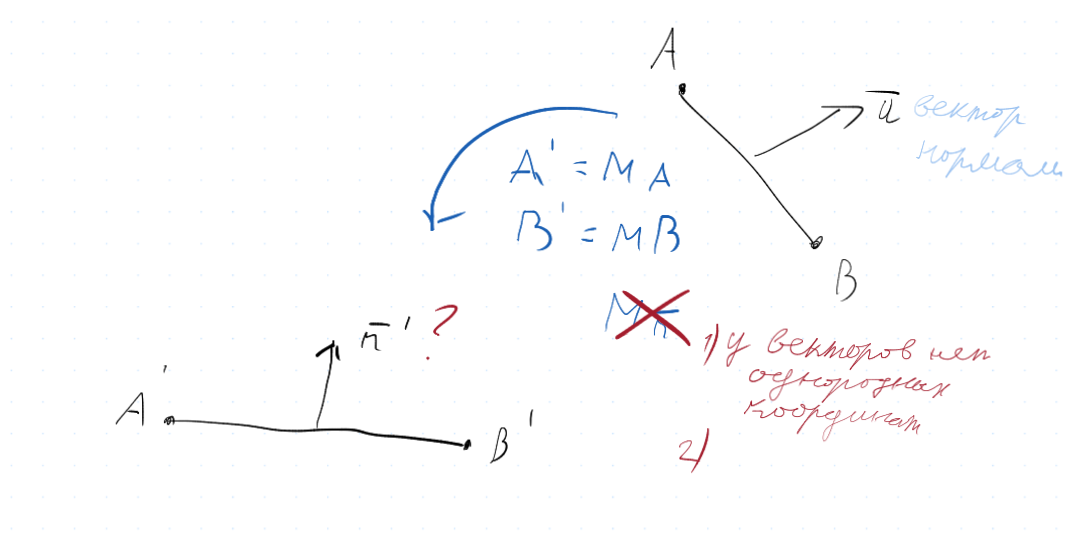 A
n̅ вектор
нормали
A' = M A
B' = M B
B
M n̅
n̅' ?
1) у векторов нет
однородных
координат
A'
B'
2)